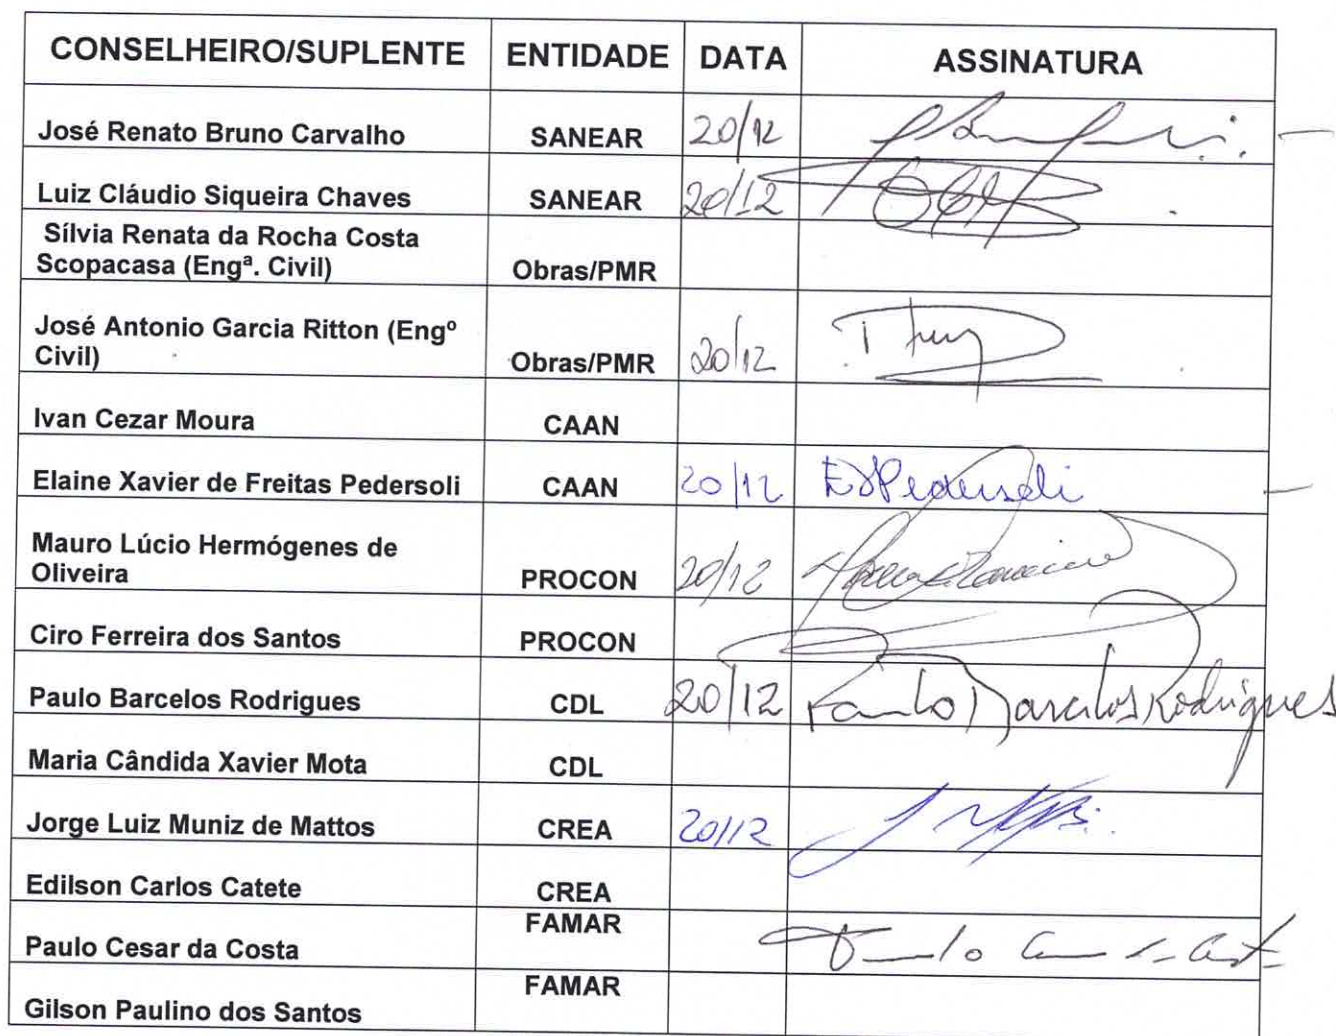 CONSELHEIRO/SUPLENTE ENTIDADE DATA ASSINATURA
José Renato Bruno Carvalho SANEAR 20/12
Luiz Cláudio Siqueira Chaves SANEAR 20/12
Sílvia Renata da Rocha Costa
Scopacasa (Engª. Civil) Obras/PMR
José Antonio Garcia Ritton (Engº
Civil) Obras/PMR 20/12
Ivan Cezar Moura CAAN
Elaine Xavier de Freitas Pedersoli CAAN 20/12 EXPedersoli
Mauro Lúcio Hermógenes de
Oliveira PROCON 20/12
Ciro Ferreira dos Santos PROCON
Paulo Barcelos Rodrigues CDL 20/12 Paulo Barcelos Rodrigues
Maria Cândida Xavier Mota CDL
Jorge Luiz Muniz de Mattos CREA 20/12
Edilson Carlos Catete CREA
Paulo Cesar da Costa FAMAR
Gilson Paulino dos Santos FAMAR